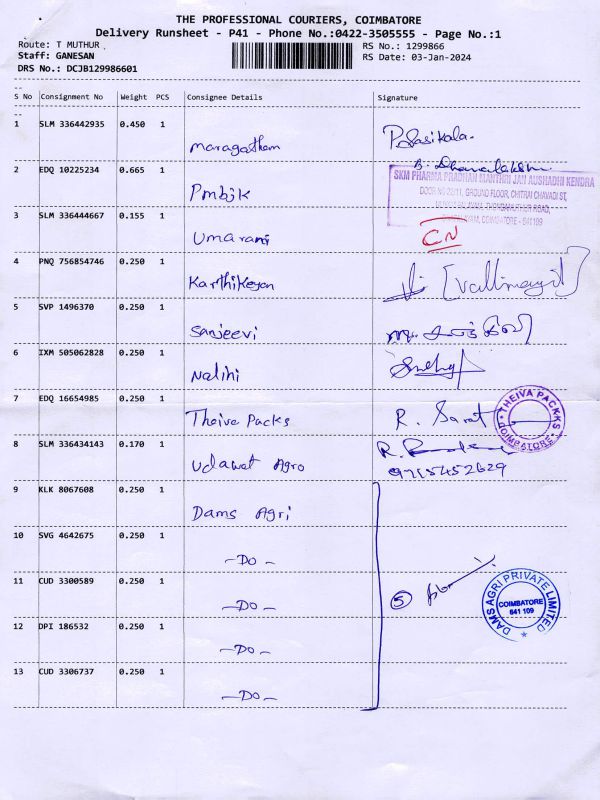 THE PROFESSIONAL COURIERS, COIMBATORE
Delivery Runsheet - P41 - Phone No.:0422-3505555 - Page No.:1
Route: T MUTHUR RS No.: 1299866
Staff: GANESAN RS Date: 03-Jan-2024
DRS No.: DCJB129986601
S No Consignment No Weight PCS Consignee Details Signature
1 SLM 336442935 0.450 1 Maragatham P. Sasikala.
2 EDQ 10225234 0.665 1 Pmbjk B. Dhanalakshmi
SKM PHARMA PRADHAN MANTHRI JAN AUSHADHI KENDRA
DOOR NO 22/11, GROUND FLOOR, CHITRAI CHAVADI ST,
COIMBATORE - 641 109
3 SLM 336444667 0.155 1 Umarani CN
4 PNQ 756854746 0.250 1 Karthikeyan [Vallinayi]
5 SVP 1496370 0.250 1 Sanjeevi
6 IXM 505062828 0.250 1 Nalini
7 EDQ 16654985 0.250 1 Theiva Packs R. Sarat
THEIVA PACKKS
COIMBATORE
8 SLM 336434143 0.170 1 Udawat Agro R.
9715452629
9 KLK 8067608 0.250 1 Dams Agri
10 SVG 4642675 0.250 1 -Do-
11 CUD 3300589 0.250 1 -Do- 5
DAMS AGRI PRIVATE LIMITED
COIMBATORE
641 109
12 DPI 186532 0.250 1 -Do-
13 CUD 3306737 0.250 1 -Do-